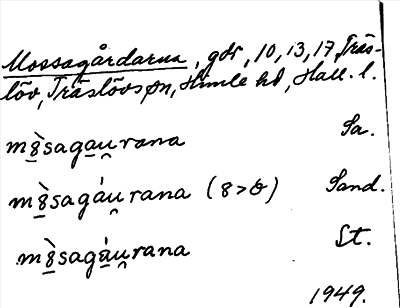 Mossagårdarna, gdr, 10, 13, 17, Träs-
löv, Träslövs sn, Himle hd, Hall. l.
mȣ̀sagau̯rana Sa.
mȣ̀sagáu̯rana (8>ծ) Sand.
mȣ̀sagáu̯rana St.
1949.